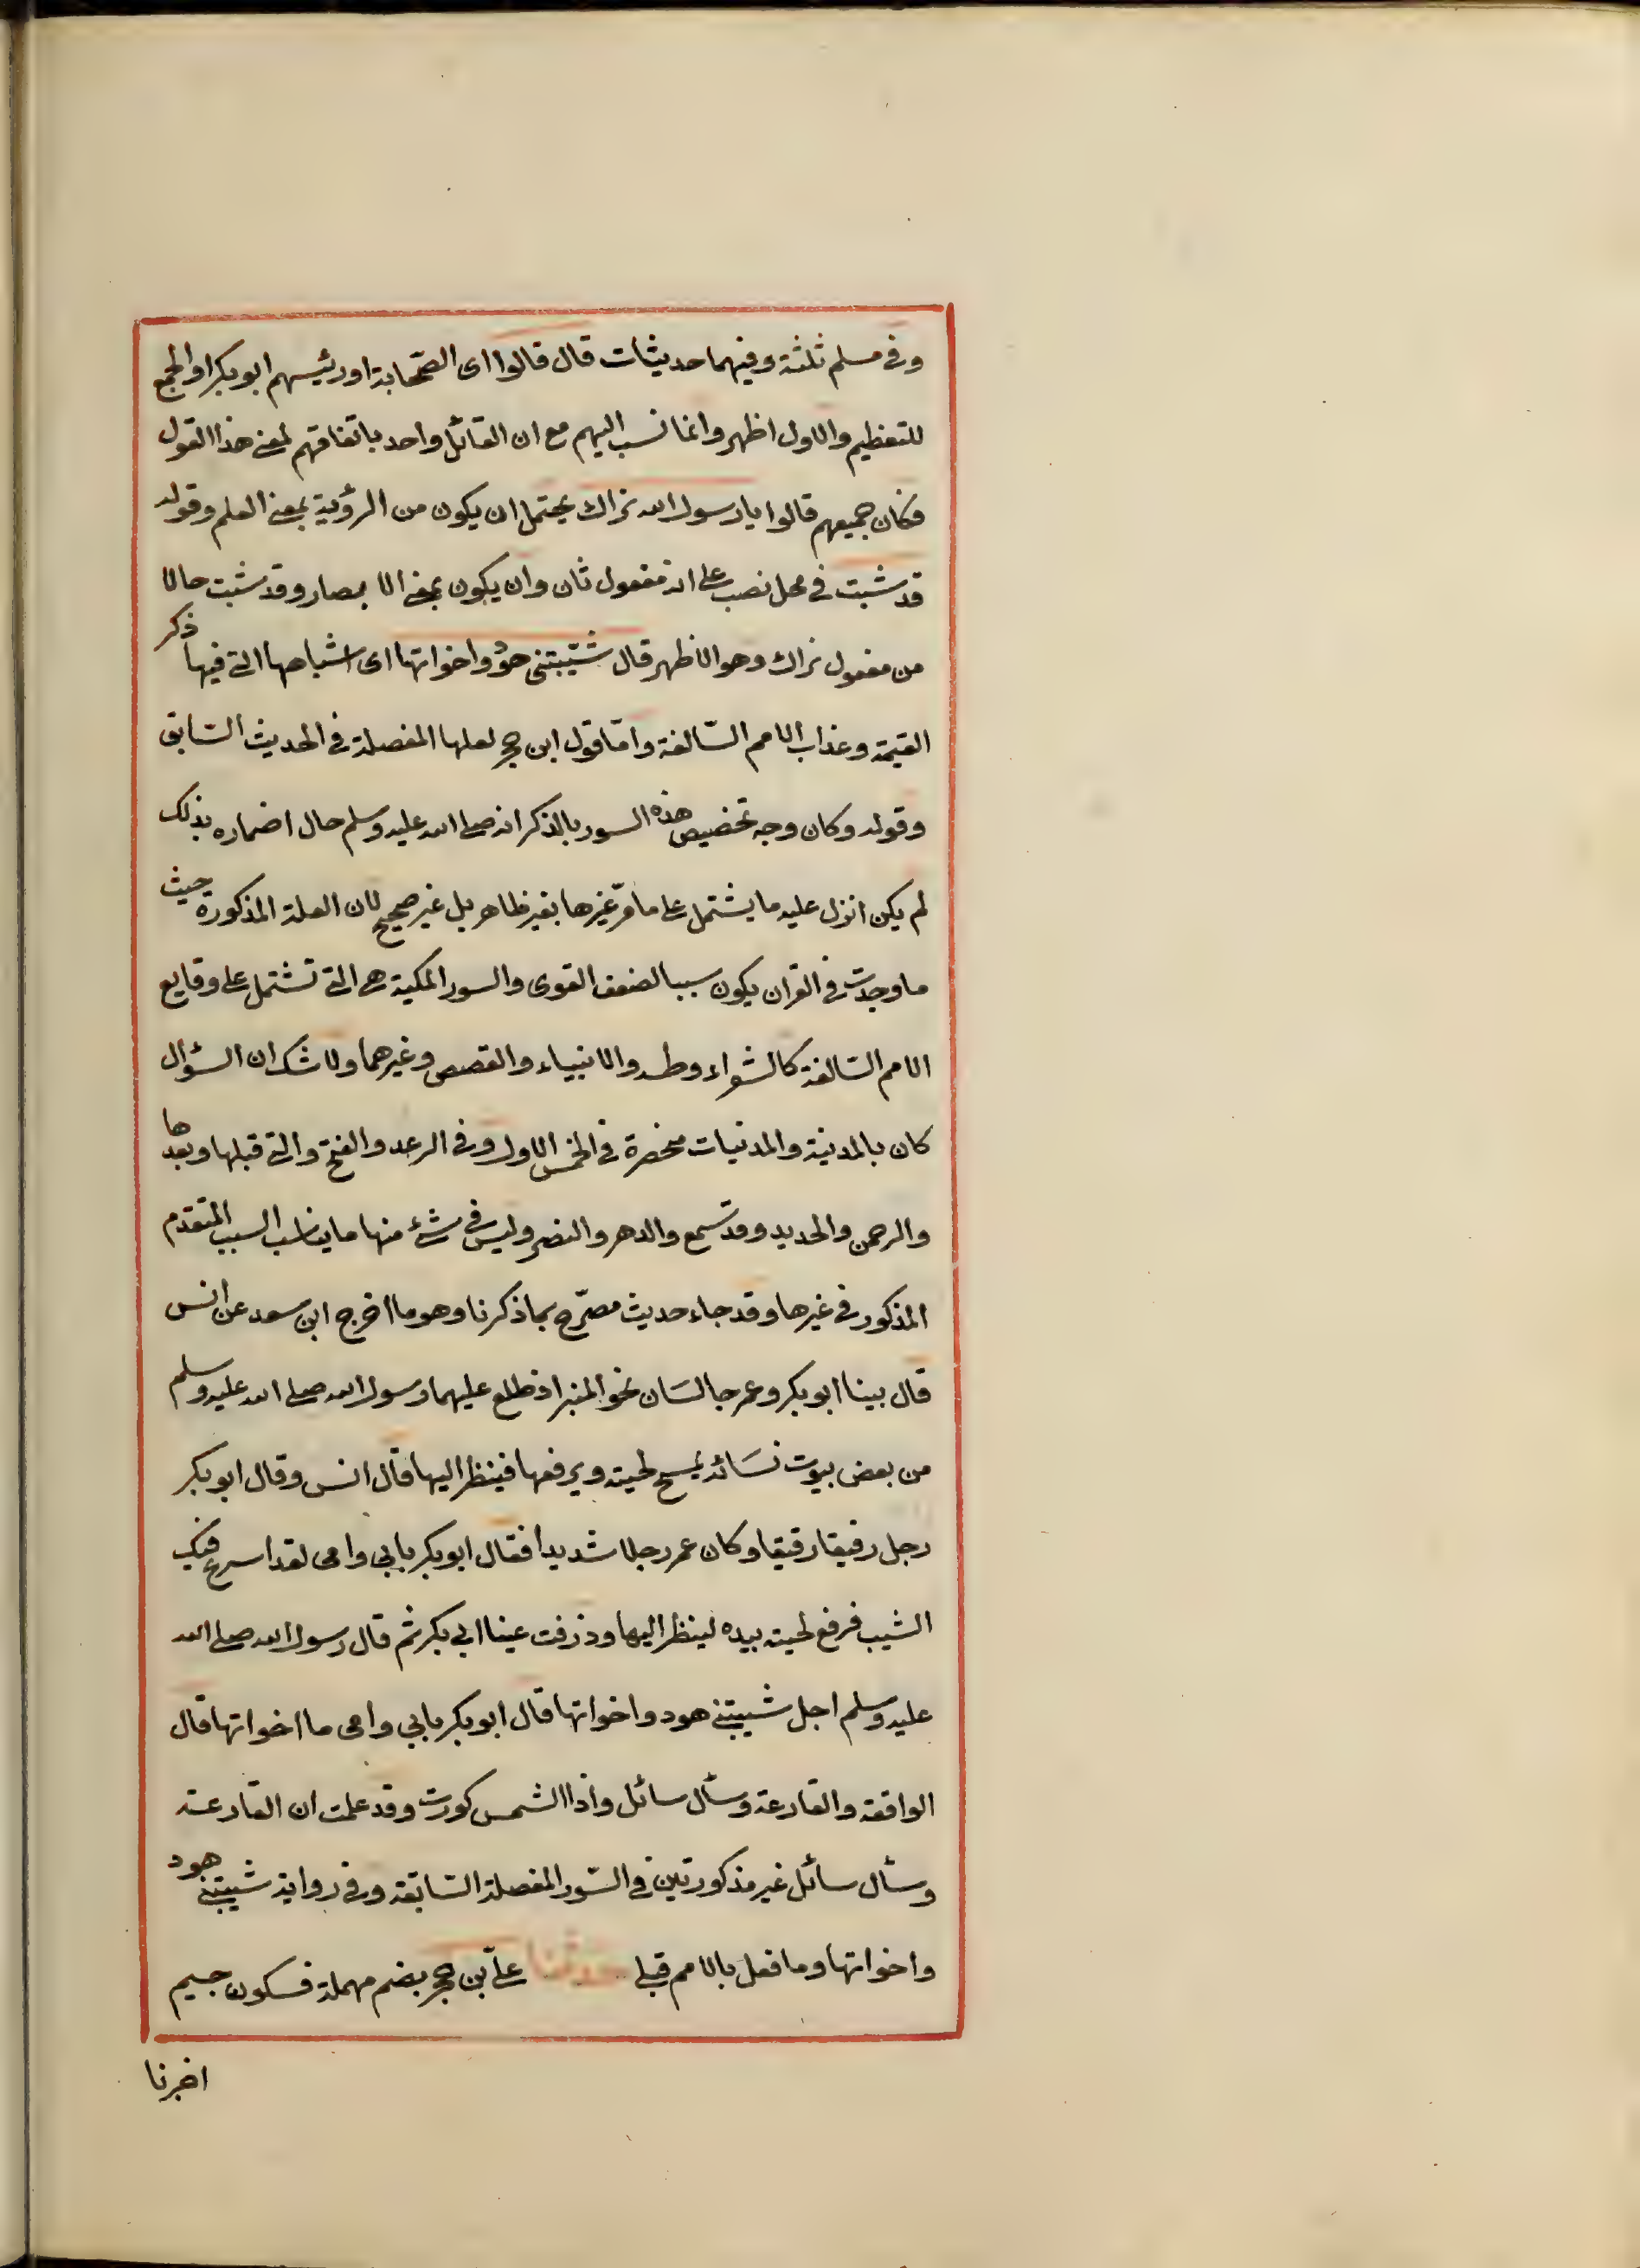 وفى مسلم ثلثة وفيهما حديثات قال قالوا اى الصّحابة او رئيسهم ابو بكر او الجمع
للتعظيم والاول اظهر وانما نسب اليهم مع ان القائل واحد باتفاقهم لمعنى هذا القول
فكان جميعهم قالوا يا رسول الله نراك يحتمل ان يكون من الرؤية بمعنى العلم وقوله
قد شبت فى محل نصب على انه مفعول ثان وان يكون بمعنى الابصار وقد شبت حالا
من مفعول نراك وهو الاظهر قال شيّبتنى هودٌ واخواتها اى اشباهها التى فيها ذكر
القيمة وعذاب الامم السّالفة وامّا قول ابن حجر لعلها المفصلة فى الحديث السّابق
وقوله وكان وجه تخصيص هذه السور بالذكر انه صلى الله عليه وسلم حال اخباره بذلك
لم يكن انزل عليه ما يشتمل على ما مرّ غيرها بغير ظاهر بل غير صحيح لان العلة المذكورة حيث
ما وجدت فى القرآن يكون سببا لضعف القوى والسور المكية هى التى تشتمل على وقايع
الامم السّالفة كالشعراء وطه والانبياء والقصص وغيرهما ولا شك ان السؤال
كان بالمدينة والمدنيات منحصرة فى الخمس الاول وفى الرعد والفتح والتى قبلها وبعدها
والرحمن والحديد وقد سمع والدهر والنصر وليس فى شئ منها ما يناسب السبب المتقدم
المذكور فى غيرها وقد جاء حديث مصرّح بما ذكرنا وهو ما اخرج ابن سعد عن انس
قال بينا ابو بكر وعمر جالسَان نحو المنبر اذ طلع عليهما رسول الله صلى الله عليه وسلم
من بعض بيوت نسَائه يمسح لحيته ويرفعها فينظر اليها قال انس وقال ابو بكر
رجل رفيقا رقيقا وكان عمر رجلا شديدا فقال ابو بكر بابى وامى لقد اسرع فيك
الشيب فرفع لحيته بيده لينظر اليها وذرفت عينا ابى بكر ثم قال رسول الله صلى الله
عليه وسلم اجل شيبتنى هود واخواتها قال ابو بكر بابى وامى ما اخواتها قال
الواقعة والقارعة وسأل سائل واذا الشمس كورت وقد علمت ان القارعة
وسأل سائل غير مذكورتين فى السّور المفصلة السّابقة وفى رواية شيبتنى هود
واخواتها وما فعل بالامم قبلى حدثنا علىّ بن حجر بضم مهملة فسكون جيم
اخبرنا